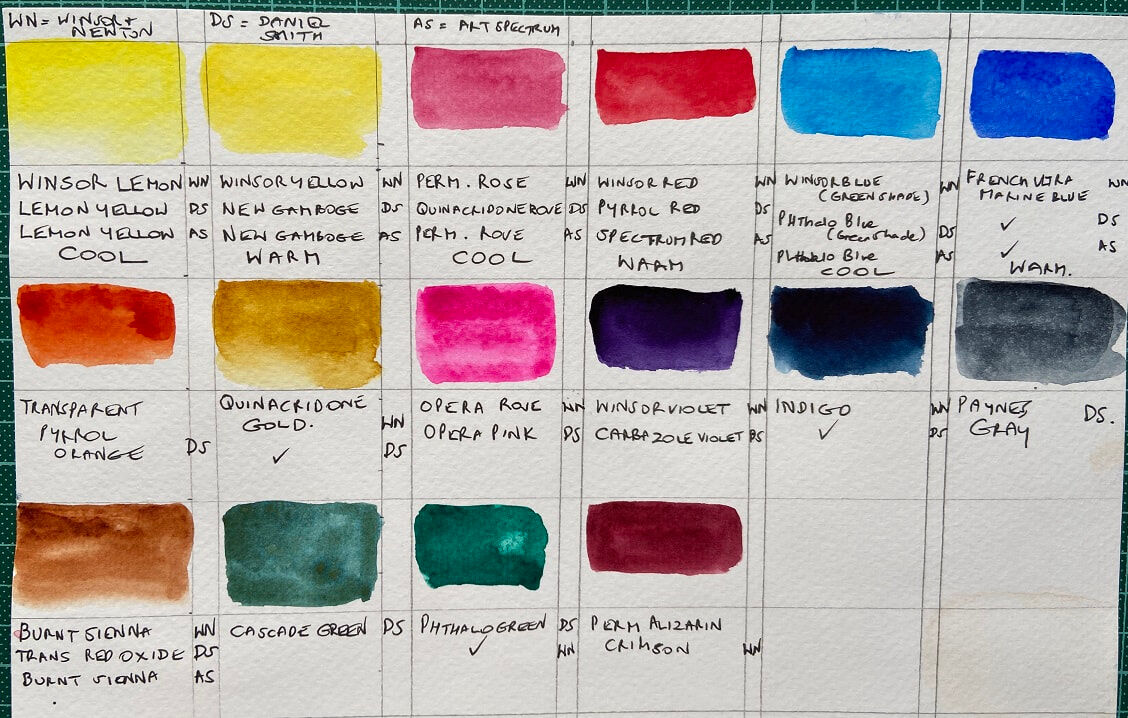 WN = WINSOR +
NEWTON
DS = DANIEL
SMITH
AS = ART SPECTRUM
WINSOR LEMON WN
LEMON YELLOW DS
LEMON YELLOW AS
COOL
WINSOR YELLOW WN
NEW GAMBOGE DS
NEW GAMBOGE AS
WARM
PERM. ROSE WN
QUINACRIDONE ROSE DS
PERM. ROSE AS
COOL
WINSOR RED WN
PYRROL RED DS
SPECTRUM RED AS
WARM
WINSOR BLUE WN
(GREEN SHADE)
Phthalo Blue
(Green shade) DS
Phthalo Blue AS
COOL
FRENCH ULTRA WN
MARINE BLUE
✓ DS
✓ AS
WARM.
TRANSPARENT
PYRROL
ORANGE DS
QUINACRIDONE
GOLD. WN
✓ DS
OPERA ROSE WN
OPERA PINK DS
WINSOR VIOLET WN
CARBAZOLE VIOLET DS
INDIGO WN
✓ DS
PAYNES DS.
GRAY
BURNT SIENNA WN
TRANS RED OXIDE DS
BURNT SIENNA AS
CASCADE GREEN DS
PHTHALO GREEN DS
✓ WN
PERM ALIZARIN
CRIMSON WN